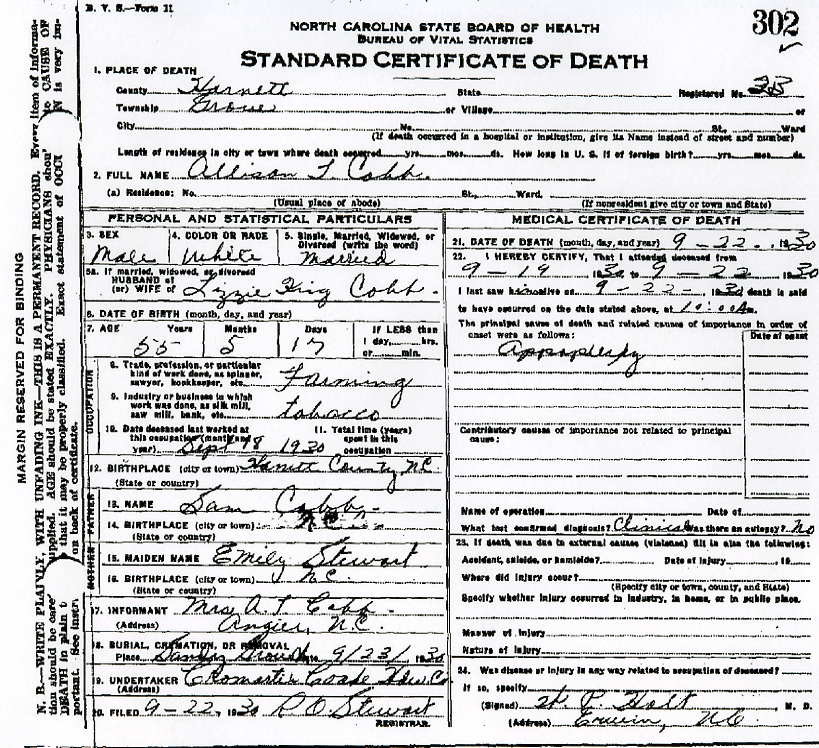 B. V. S.—Form 11
302
NORTH CAROLINA STATE BOARD OF HEALTH
BUREAU OF VITAL STATISTICS
STANDARD CERTIFICATE OF DEATH
1. PLACE OF DEATH
County Harnett State Registered No. 33
Township Grove or Village or
City No. St., Ward
(If death occurred in a hospital or institution, give its Name instead of street and number)
Length of residence in city or town where death occurred yrs. mos. ds. How long in U. S. if of foreign birth? yrs. mos. ds.
2. FULL NAME Allison T Cobb
(a) Residence: No. St., Ward.
(Usual place of abode) (If nonresident give city or town and State)
PERSONAL AND STATISTICAL PARTICULARS
3. SEX 4. COLOR OR RACE 5. Single, Married, Widowed, or
Divorced (write the word)
Male White Married
5a. If married, widowed, or divorced
HUSBAND of
(or) WIFE of Lizzie King Cobb
6. DATE OF BIRTH (month, day, and year)
7. AGE Years Months Days IF LESS than
1 day, hrs.
or min.
55 5 17
OCCUPATION
8. Trade, profession, or particular
kind of work done, as spinner,
sawyer, bookkeeper, etc. Farming
9. Industry or business in which
work was done, as silk mill,
saw mill, bank, etc. tobacco
10. Date deceased last worked at
this occupation (month and
year) Sept 18 1930
11. Total time (years)
spent in this
occupation
12. BIRTHPLACE (city or town) Harnett County N.C.
(State or country)
FATHER
13. NAME Sam Cobb
14. BIRTHPLACE (city or town) N.C.
(State or country)
MOTHER
15. MAIDEN NAME Emily Stewart
16. BIRTHPLACE (city or town) N.C.
(State or country)
17. INFORMANT Mrs A. T. Cobb
(Address) Angier, N.C.
18. BURIAL, CREMATION, OR REMOVAL
Place Date 9/23/1930
19. UNDERTAKER Hdw. Co
(Address)
20. FILED 9-22, 1930 R. O. Stewart
REGISTRAR.
MEDICAL CERTIFICATE OF DEATH
21. DATE OF DEATH (month, day, and year) 9-22, 1930
22. I HEREBY CERTIFY, That I attended deceased from
9-19 1930 to 9-22 1930
I last saw him alive on 9-22- 1930 death is said
to have occurred on the date stated above, at 10:00 A m.
The principal cause of death and related causes of importance in order of
onset were as follows: Date of onset
Appoplexy
Contributory causes of importance not related to principal
cause:
Name of operation Date of
What test confirmed diagnosis? Clinical Was there an autopsy? No
23. If death was due to external causes (violence) fill in also the following:
Accident, suicide, or homicide? Date of injury 19
Where did injury occur?
(Specify city or town, county, and State)
Specify whether injury occurred in industry, in home, or in public place.
Manner of injury
Nature of injury
24. Was disease or injury in any way related to occupation of deceased?
If so, specify
(Signed) P. Holt M. D.
(Address) Erwin, N.C.
MARGIN RESERVED FOR BINDING
N. B.—WRITE PLAINLY, WITH UNFADING INK—THIS IS A PERMANENT RECORD. Every item of informa-
tion should be care supplied. AGE should be stated EXACTLY. PHYSICIANS shou to CAUSE OF
DEATH in plain t that it may be properly classified. Exact statement of OCCU N is very im-
portant. See instr on back of certificate.